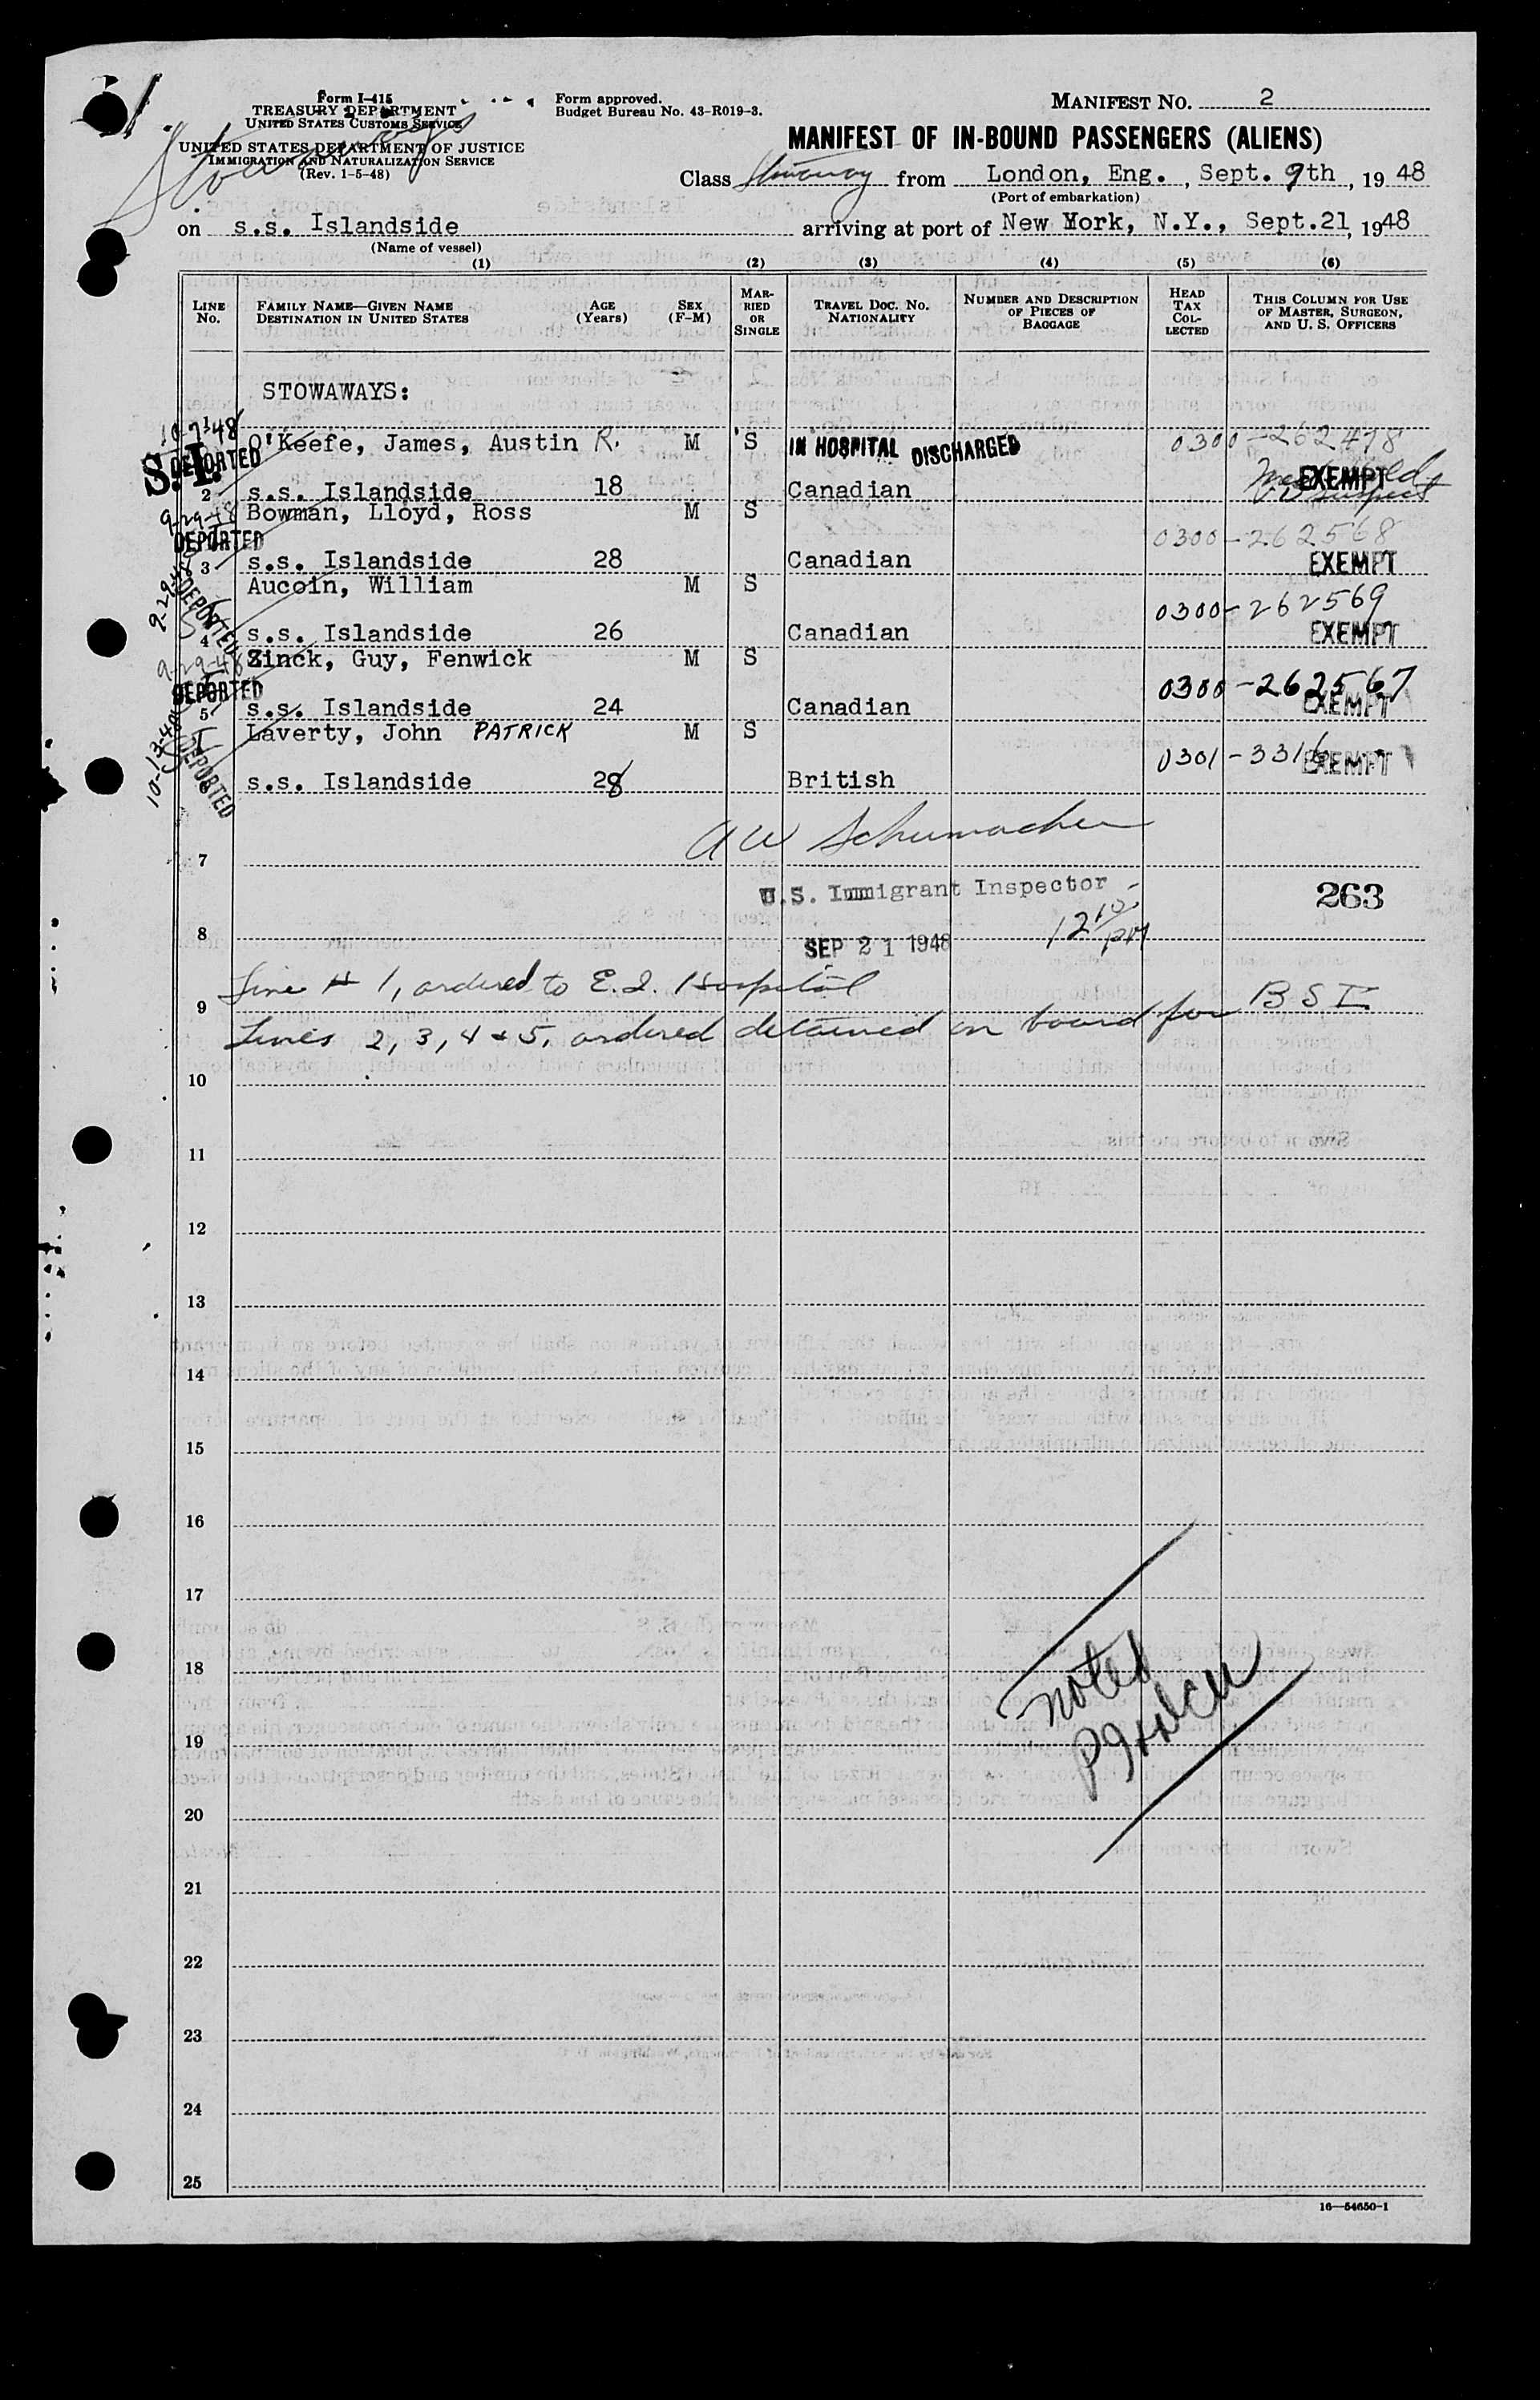 Form I-415
TREASURY DEPARTMENT
UNITED STATES CUSTOMS SERVICE
UNITED STATES DEPARTMENT OF JUSTICE
IMMIGRATION AND NATURALIZATION SERVICE
(Rev. 1-5-48)
Stowaways
Form approved.
Budget Bureau No. 43-R019-3.
MANIFEST NO. 2
MANIFEST OF IN-BOUND PASSENGERS (ALIENS)
Class Stowaway from London, Eng., Sept. 9th, 1948
(Port of embarkation)
on s.s. Islandside arriving at port of New York, N.Y., Sept.21, 1948
(Name of vessel)
(1) (2) (3) (4) (5) (6)
LINE No. FAMILY NAME—GIVEN NAME DESTINATION IN UNITED STATES AGE (Years) SEX (F-M) MARRIED OR SINGLE TRAVEL DOC. NO. NATIONALITY NUMBER AND DESCRIPTION OF PIECES OF BAGGAGE HEAD TAX COLLECTED THIS COLUMN FOR USE OF MASTER, SURGEON, AND U. S. OFFICERS
STOWAWAYS:
10-7-48 DEPORTED S.I.
O'Keefe, James, Austin R. M S IN HOSPITAL DISCHARGED 0300-262478
2 s.s. Islandside 18 Canadian EXEMPT
V D suspect
9-29-48 DEPORTED
Bowman, Lloyd, Ross M S 0300-262568
3 s.s. Islandside 28 Canadian EXEMPT
9-29-48 DEPORTED
Aucoin, William M S 0300-262569
4 s.s. Islandside 26 Canadian EXEMPT
9-29-48 DEPORTED
Zinck, Guy, Fenwick M S 0300-262567
5 s.s. Islandside 24 Canadian EXEMPT
10-13-48 DEPORTED
Laverty, John PATRICK M S 0301-3316
s.s. Islandside 28 British EXEMPT
A W Schumacher
7
U.S. Immigrant Inspector 263
8 SEP 21 1948 12 10 PM
Line # 1, ordered to E.I. Hospital
9
Lines 2, 3, 4 & 5, ordered detained on board for B S I
10
11
12
13
14
15
16
17
18
noted
19
20
21
22
23
24
25
16—54650-1